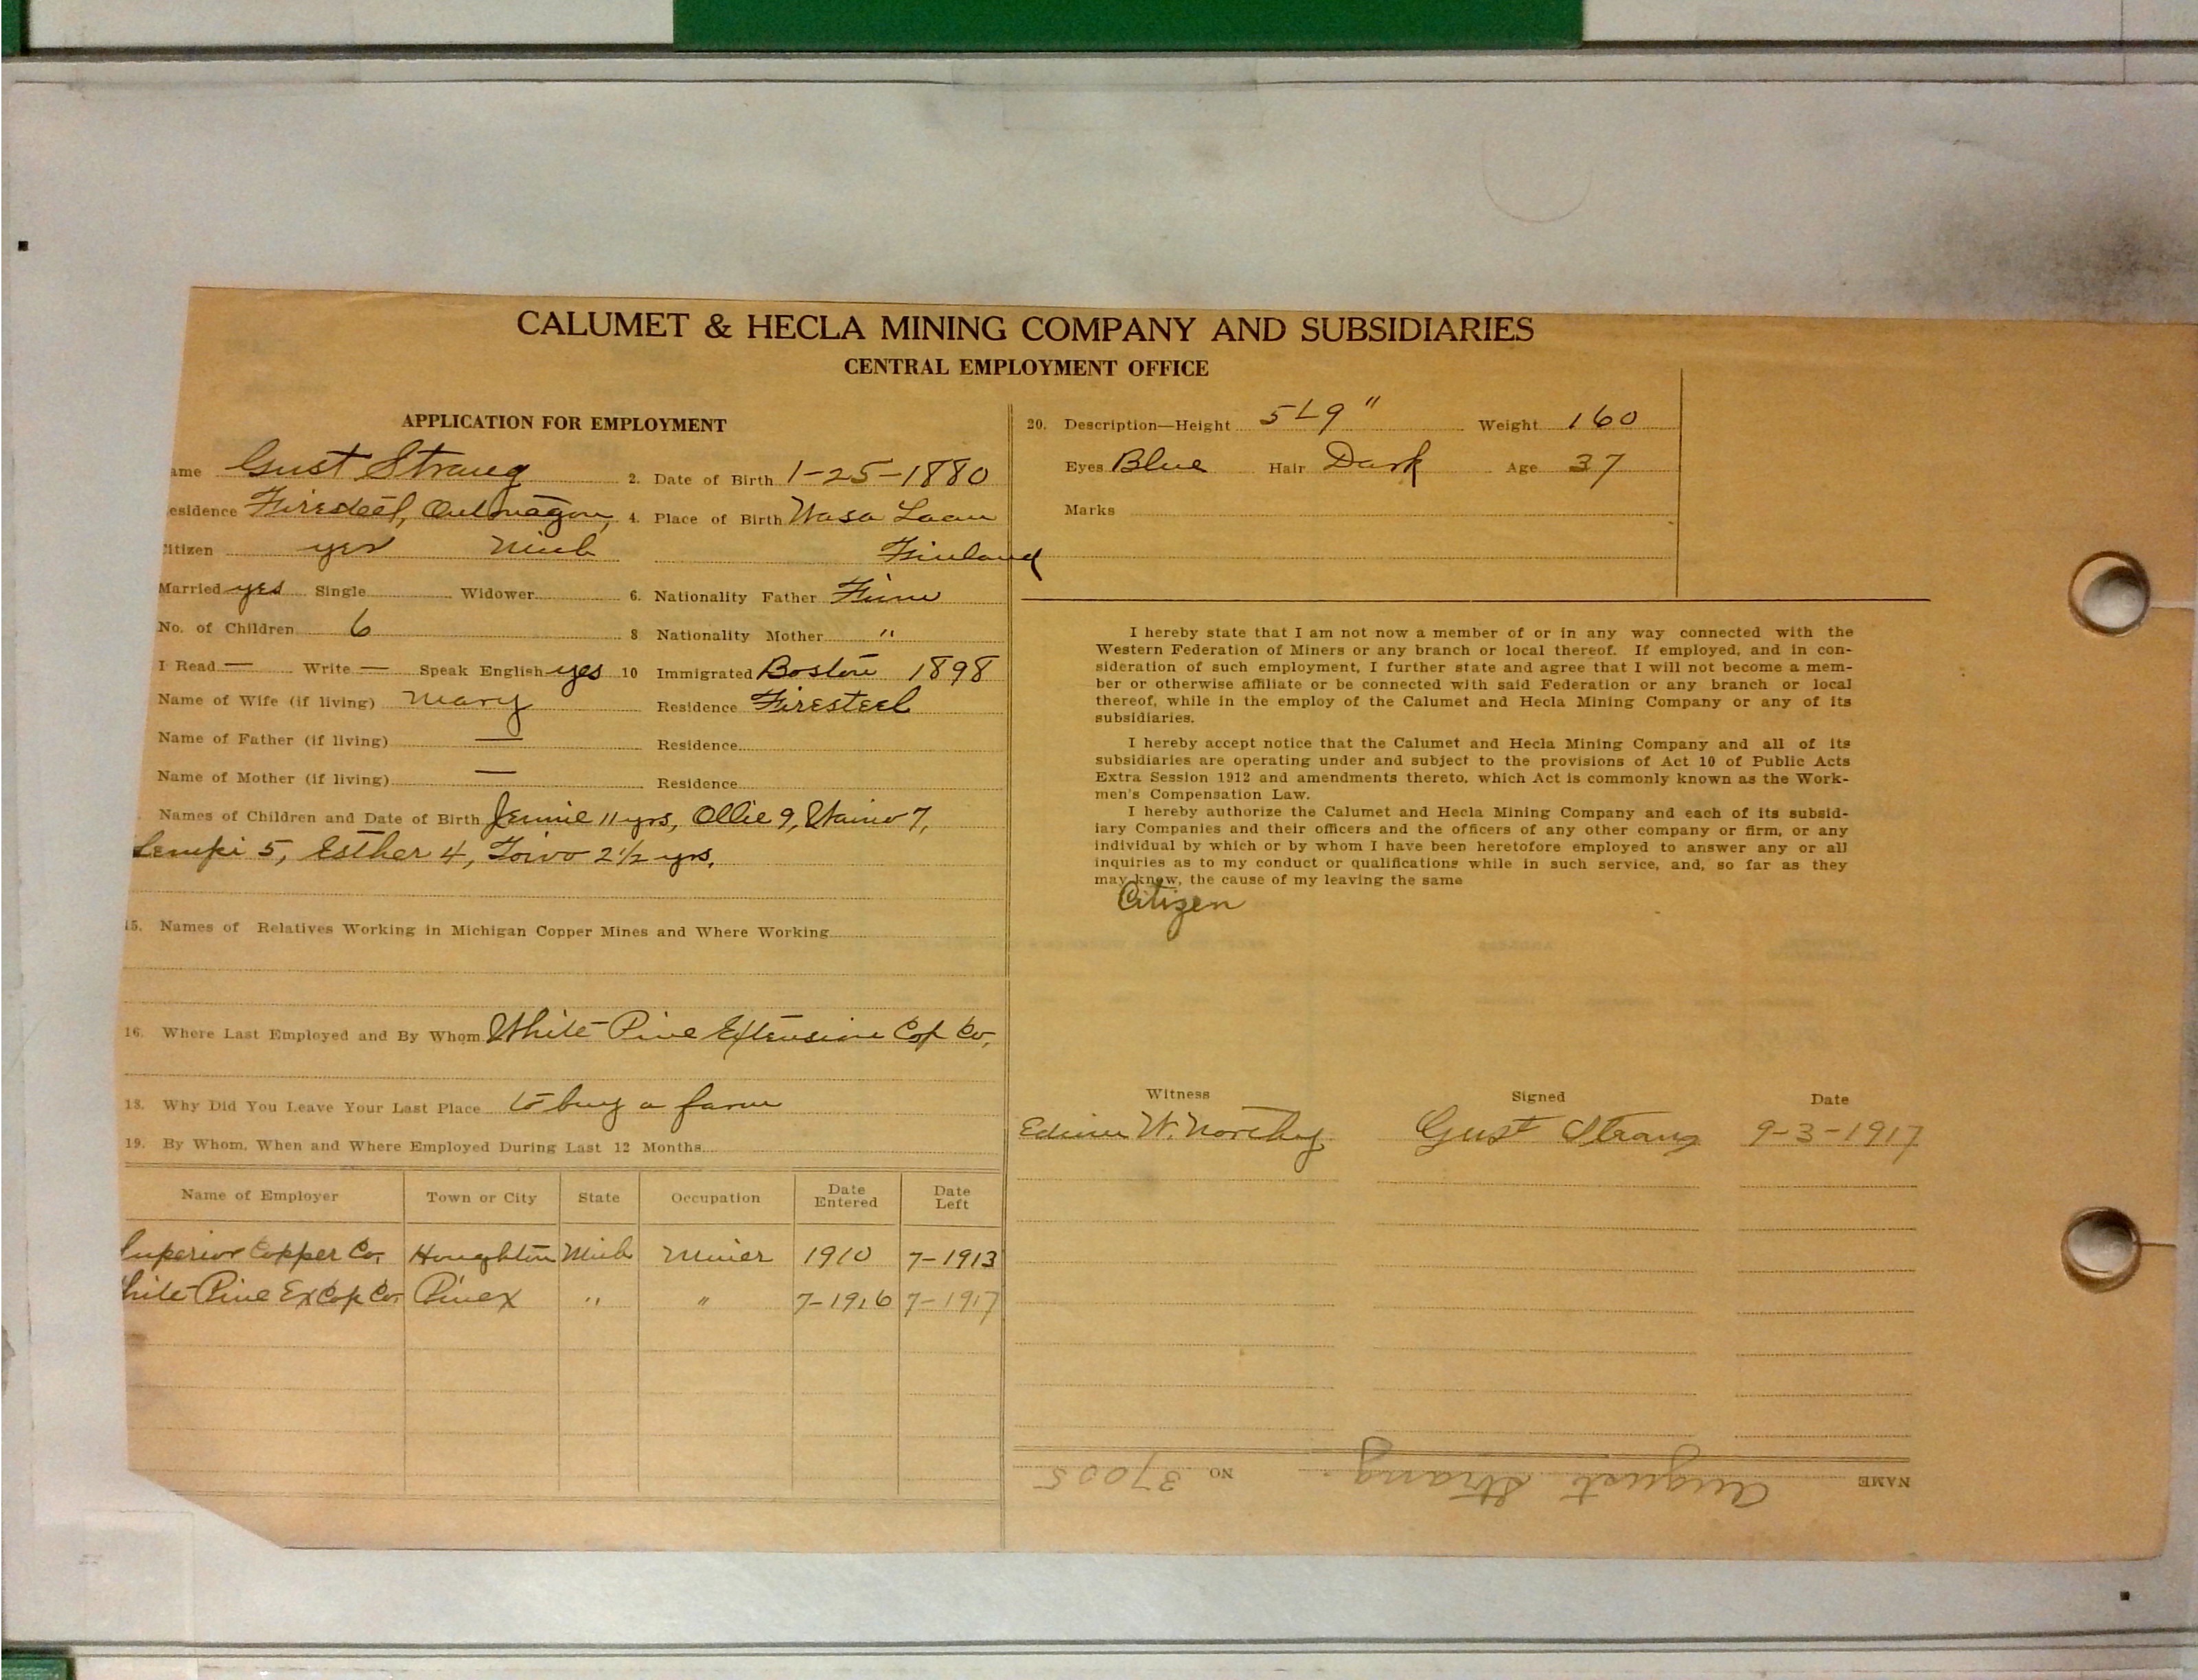 CALUMET & HECLA MINING COMPANY AND SUBSIDIARIES
CENTRAL EMPLOYMENT OFFICE
APPLICATION FOR EMPLOYMENT
ame Gust Strang 2. Date of Birth 1-25-1880
esidence Firesteel, Ontonagon, 4. Place of Birth Wasa Laan
itizen yes Mich Finland
Married yes Single Widower 6. Nationality Father Finn
No. of Children 6 8 Nationality Mother "
I Read — Write — Speak English yes 10 Immigrated Boston 1898
Name of Wife (if living) Mary Residence Firesteel
Name of Father (if living) — Residence
Name of Mother (if living) — Residence
Names of Children and Date of Birth Jennie 11 yrs, Ollie 9, Waino 7,
Lempi 5, Esther 4, Toivo 2½ yrs.
15. Names of Relatives Working in Michigan Copper Mines and Where Working
16. Where Last Employed and By Whom White Pine Extension Cop Co,
18. Why Did You Leave Your Last Place to buy a farm
19. By Whom, When and Where Employed During Last 12 Months
Name of Employer Town or City State Occupation Date Entered Date Left
Superior Copper Co, Houghton Mich Miner 1910 7-1913
hite Pine Ex Cop Co. Pinex " " 7-1916 7-1917
20. Description—Height 5'-9" Weight 160
Eyes Blue Hair Dark Age 37
Marks
I hereby state that I am not now a member of or in any way connected with the
Western Federation of Miners or any branch or local thereof. If employed, and in con-
sideration of such employment, I further state and agree that I will not become a mem-
ber or otherwise affiliate or be connected with said Federation or any branch or local
thereof, while in the employ of the Calumet and Hecla Mining Company or any of its
subsidiaries.
I hereby accept notice that the Calumet and Hecla Mining Company and all of its
subsidiaries are operating under and subject to the provisions of Act 10 of Public Acts
Extra Session 1912 and amendments thereto, which Act is commonly known as the Work-
men's Compensation Law.
I hereby authorize the Calumet and Hecla Mining Company and each of its subsid-
iary Companies and their officers and the officers of any other company or firm, or any
individual by which or by whom I have been heretofore employed to answer any or all
inquiries as to my conduct or qualifications while in such service, and, so far as they
may know, the cause of my leaving the same
Citizen
Witness Signed Date
W. Gust Strang 9-3-1917
NAME August Strang NO 37005